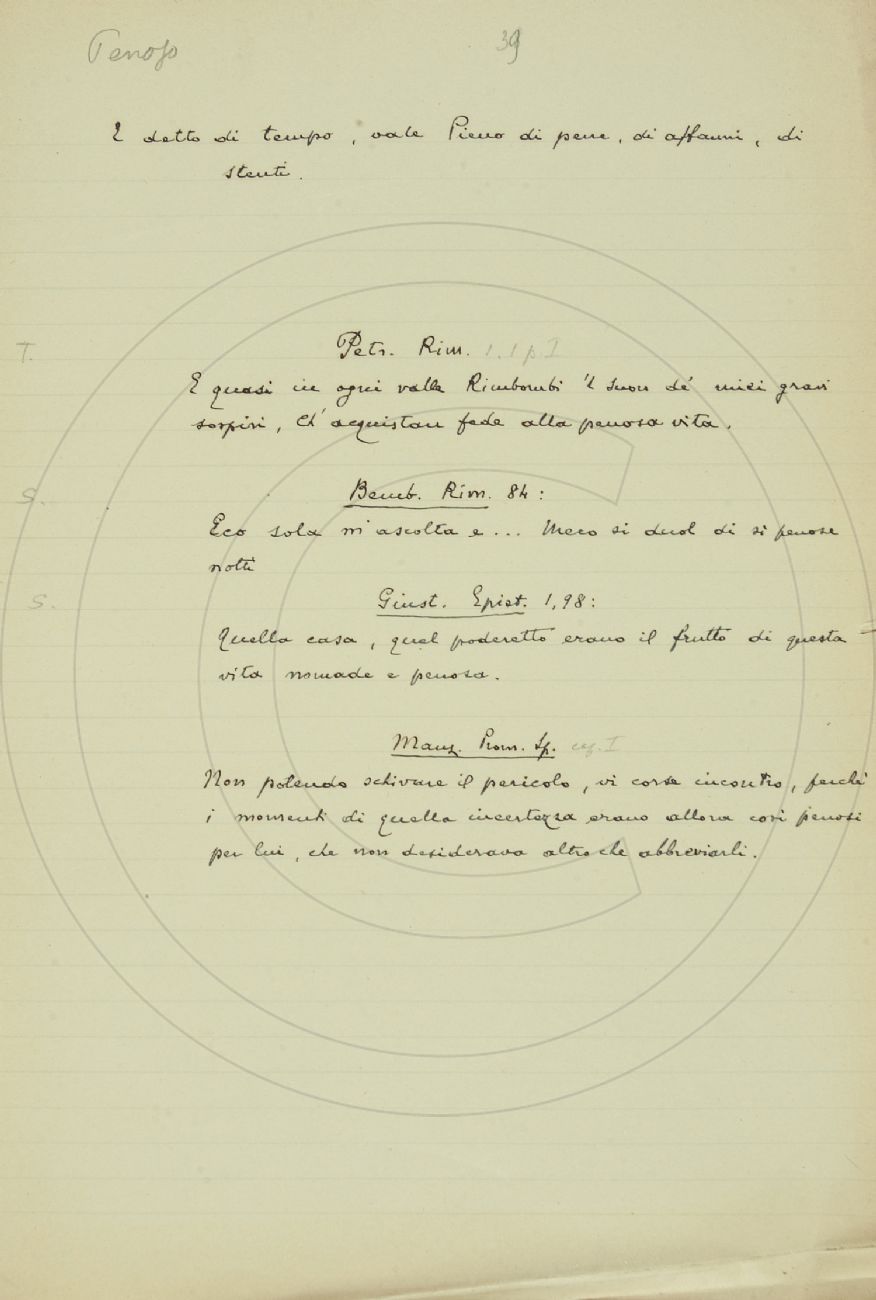 Penoso
39
E detto di tempo, vale Pieno di pene, di affanni, di
stenti.
T.
Petr. Rim. 1. 1 p I
E quasi in ogni valle Rimbombi 'l suon de' miei gravi
sospiri, Ch' acquistan fede alla penosa vita.
S.
Bemb. Rim. 84:
Eco sola m'ascolta e... Meco si duol di sì penose
notti
S.
Giust. Epist. 1,98:
Quella casa, quel poderetto erano il frutto di questa
vita nomade e penosa.
Manz. Prom. Sp. cap. I
Non potendo schivare il pericolo, vi corse incontro, perchè
i momenti di quella incertezza erano allora così penosi
per lui, che non desiderava altro che abbreviarli.